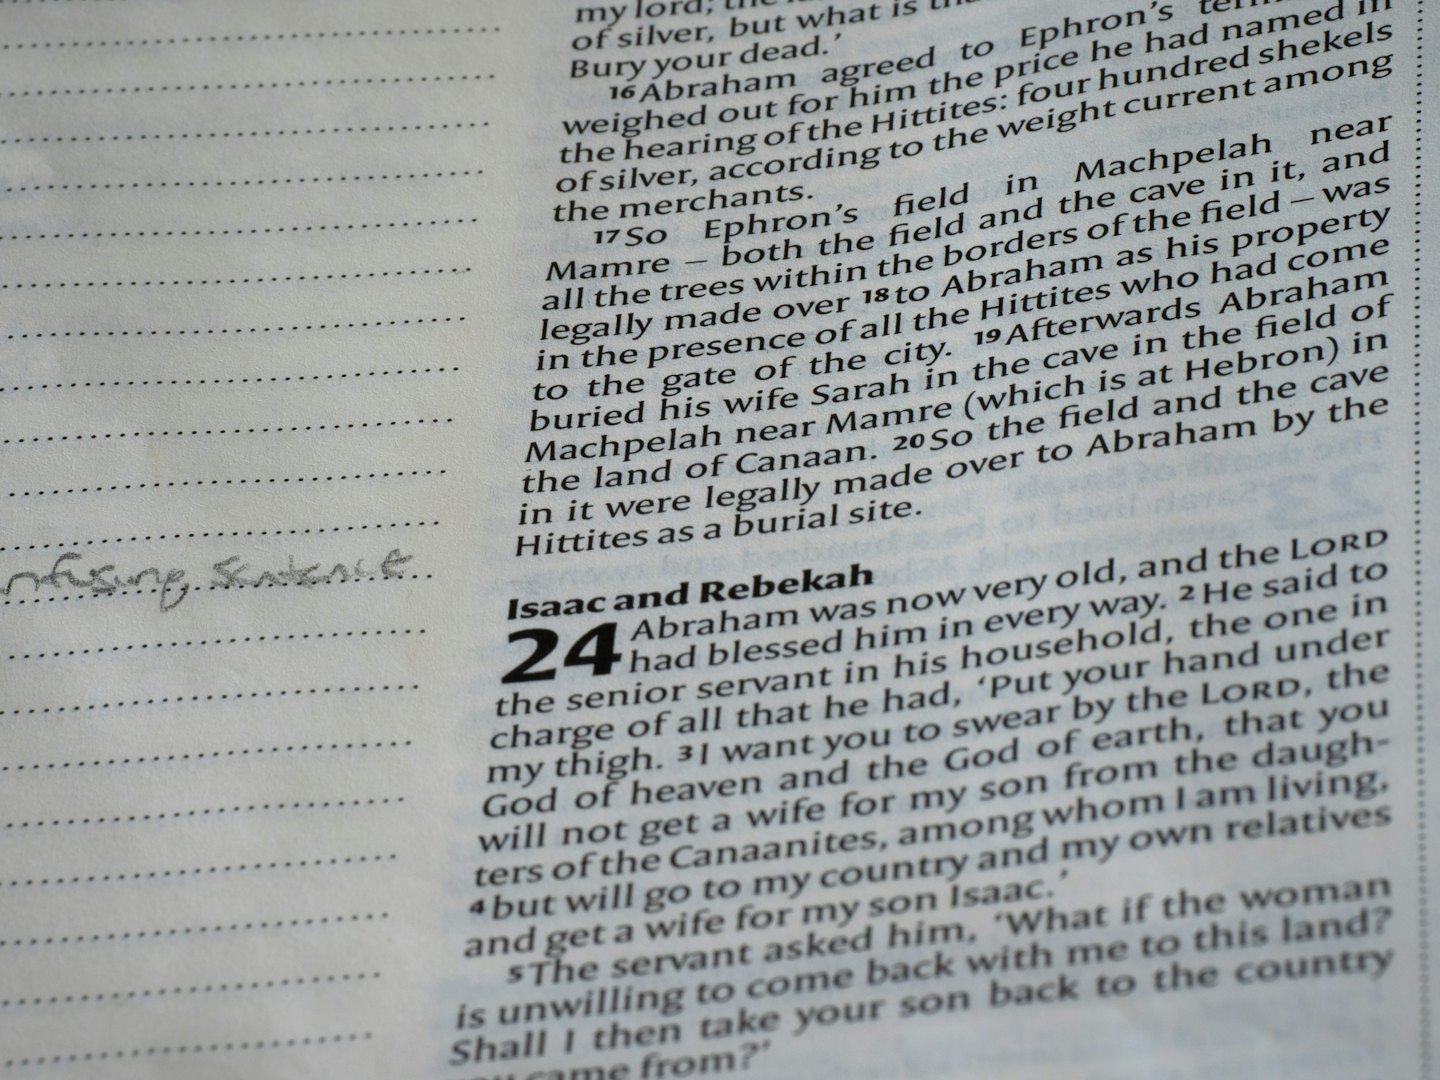 my lord; the
of silver, but what is
Bury your dead.’
16 Abraham agreed to Ephron’s
weighed out for him the price he had named in
the hearing of the Hittites: four hundred shekels
of silver, according to the weight current among
the merchants.
17 So Ephron’s field in Machpelah near
Mamre – both the field and the cave in it, and
all the trees within the borders of the field – was
legally made over 18 to Abraham as his property
in the presence of all the Hittites who had come
to the gate of the city. 19 Afterwards Abraham
buried his wife Sarah in the cave in the field of
Machpelah near Mamre (which is at Hebron) in
the land of Canaan. 20 So the field and the cave
in it were legally made over to Abraham by the
Hittites as a burial site.
nfusing sentence
Isaac and Rebekah
24 Abraham was now very old, and the LORD
had blessed him in every way. 2 He said to
the senior servant in his household, the one in
charge of all that he had, ‘Put your hand under
my thigh. 3 I want you to swear by the LORD, the
God of heaven and the God of earth, that you
will not get a wife for my son from the daugh-
ters of the Canaanites, among whom I am living,
4 but will go to my country and my own relatives
and get a wife for my son Isaac.’
5 The servant asked him, ‘What if the woman
is unwilling to come back with me to this land?
Shall I then take your son back to the country
you came from?’